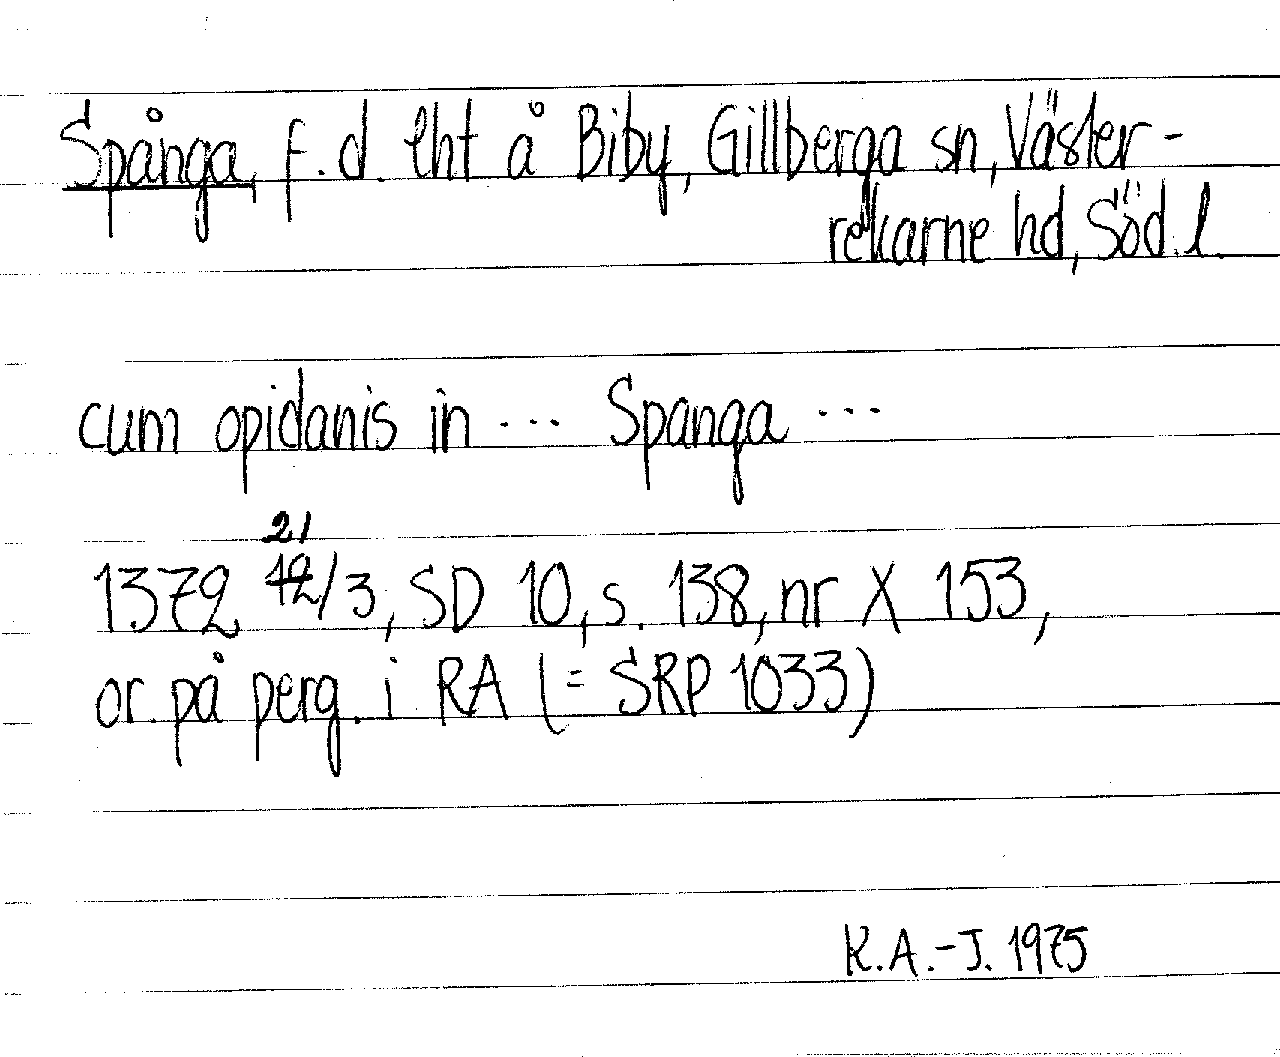 Spånga, f.d. lht å Biby, Gillberga sn, Väster-
rekarne hd, Söd. l.
cum opidanis in ... Spanga ...
21
1372 12/3, SD 10, s. 138, nr X 153,
or. på perg. i RA (= SRP 1033)
K.A.-J. 1975